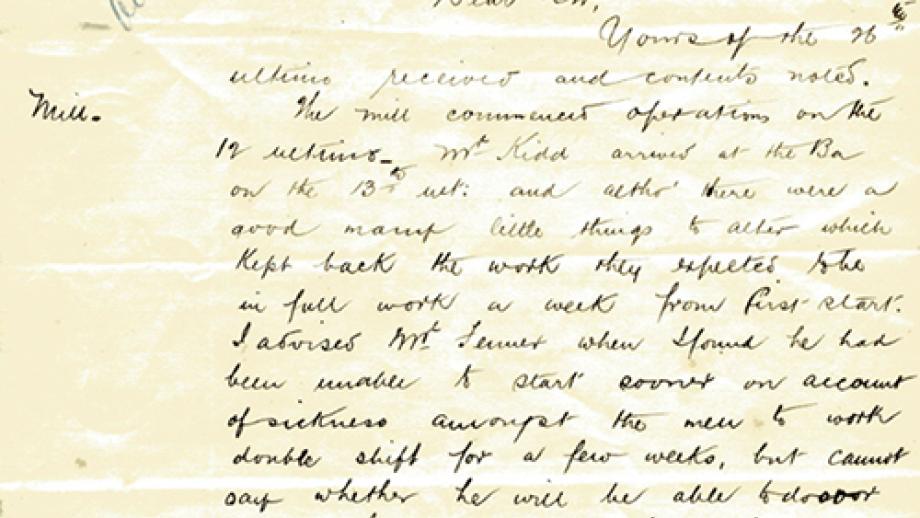 Dear Sir,
Yours of the 26th
ultimo received and contents noted.
Mill. The mill commenced operations on the
12 ultimo_ Mr. Kidd arrived at the Ba
on the 13th ult: and altho' there were a
good many little things to alter which
kept back the work they expected to be
in full work a week from first start.
I advised Mr. Fenner when I found he had
been unable to start sooner on account
of sickness amongst the men to work
double shift for a few weeks, but cannot
say whether he will be able to do so or